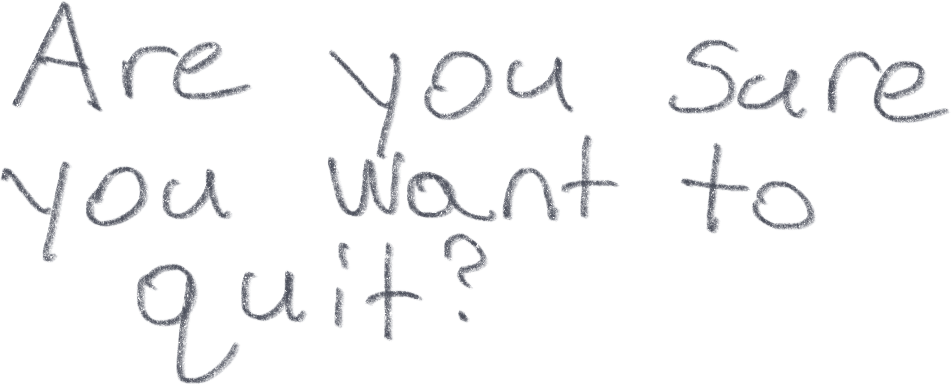 Are you sure
you want to
quit?